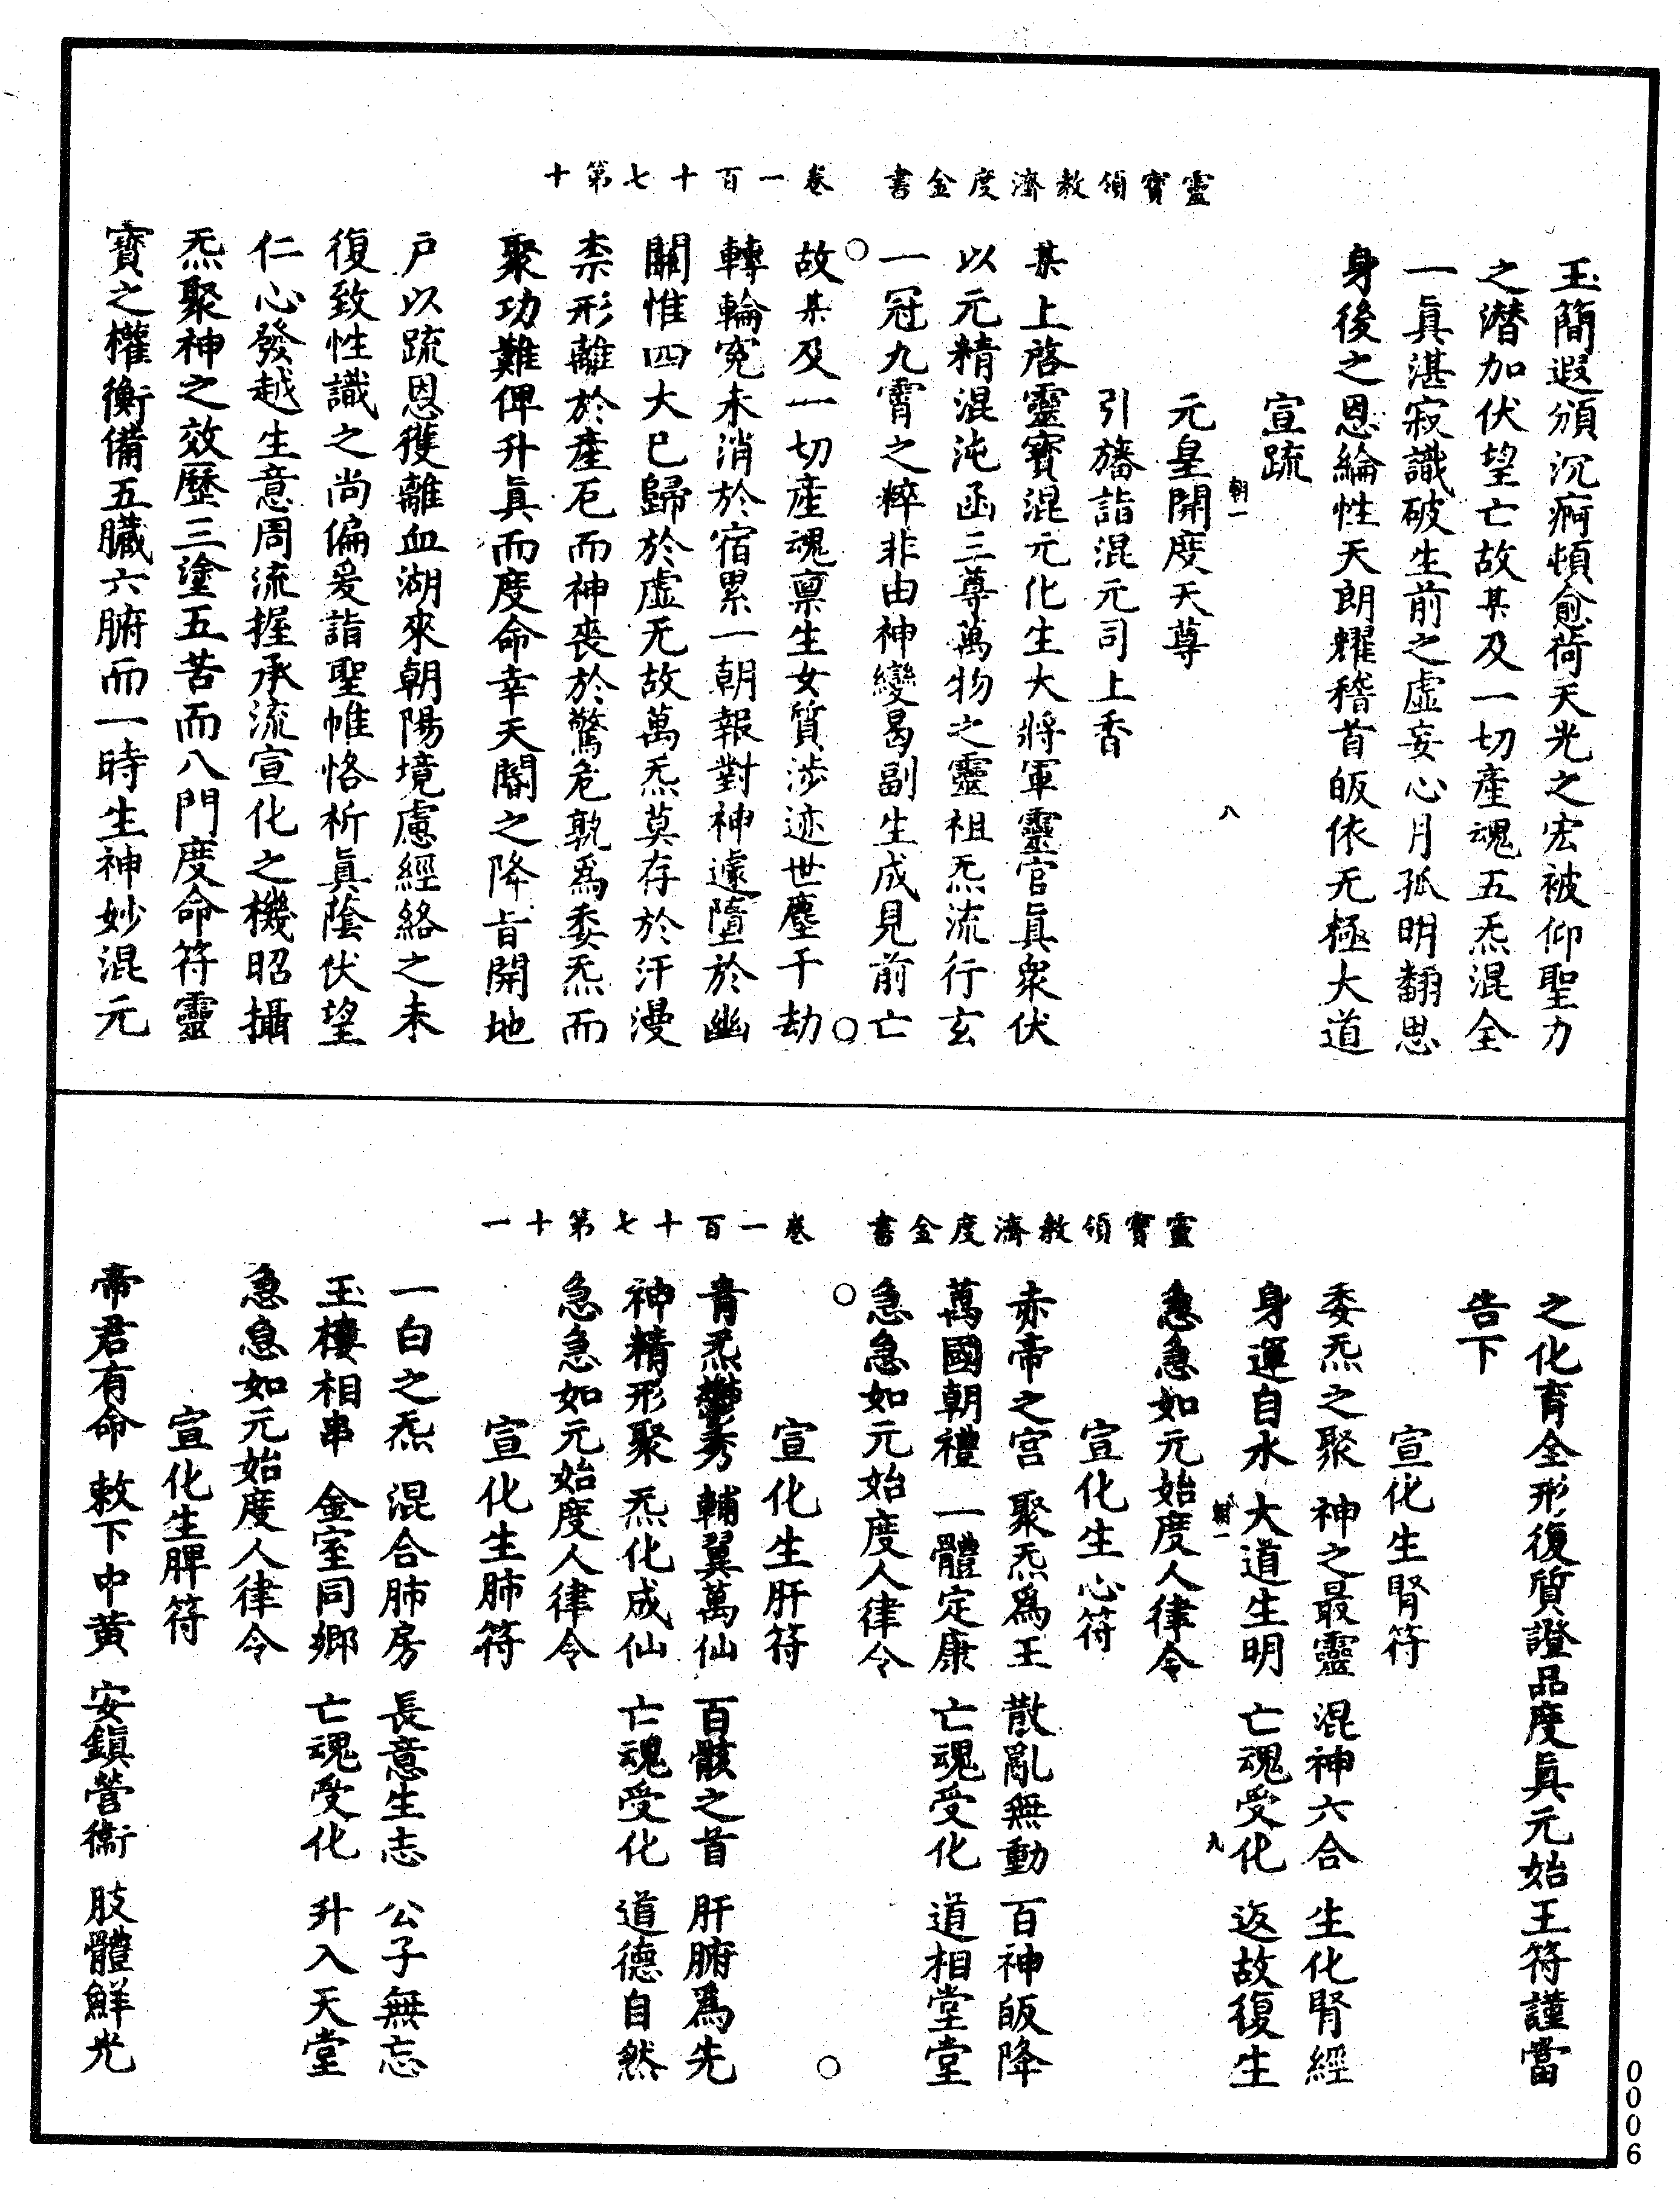 靈寶領教濟度金書　卷一百十七第十
玉簡遐頒沉痾頓愈荷天光之宏被仰聖力
之潛加伏望亡故某及一切産魂五炁混全
一真湛寂識破生前之虚妄心月孤明翻思
身後之恩綸性天朗耀稽首皈依无極大道
宣疏
朝一　八
元皇開度天尊
引旛詣混元司上香
某上啓靈寶混元化生大將軍靈官真衆伏
以元精混沌函三尊萬物之靈祖炁流行玄
一冠九霄之粹非由神變曷副生成見前亡
故某及一切産魂禀生女質涉迹世塵千劫
轉輪寃未消於宿累一朝報對神遽墮於幽
關惟四大已歸於虚无故萬炁莫存於汗漫
柰形離於産厄而神喪於驚危孰爲委炁而
聚功難俾升真而度命幸天閽之降旨開地
户以疏恩獲離血湖來朝陽境慮經絡之未
復致性識之尚偏爰詣聖帷恪祈真蔭伏望
仁心發越生意周流握承流宣化之機昭攝
炁聚神之效歷三塗五苦而八門度命符靈
寶之權衡備五臟六腑而一時生神妙混元
靈寶領教濟度金書　卷一百十七第十一
之化育全形復質證品度真元始王符謹當
告下
宣化生腎符
委炁之聚　神之最靈　混神六合　生化腎經
身運自水　大道生明　亡魂受化　返故復生
朝一　九
急急如元始度人律令
宣化生心符
赤帝之宮　聚炁爲王　散亂無動　百神皈降
萬國朝禮　一體定康　亡魂受化　道相堂堂
急急如元始度人律令
宣化生肝符
青炁鬱秀　輔翼萬仙　百骸之首　肝腑爲先
神精形聚　炁化成仙　亡魂受化　道德自然
急急如元始度人律令
宣化生肺符
一白之炁　混合肺房　長意生志　公子無忘
玉樓相串　金室同鄉　亡魂受化　升入天堂
急急如元始度人律令
宣化生脾符
帝君有命　敕下中黄　安鎮營衞　肢體鮮光
0006